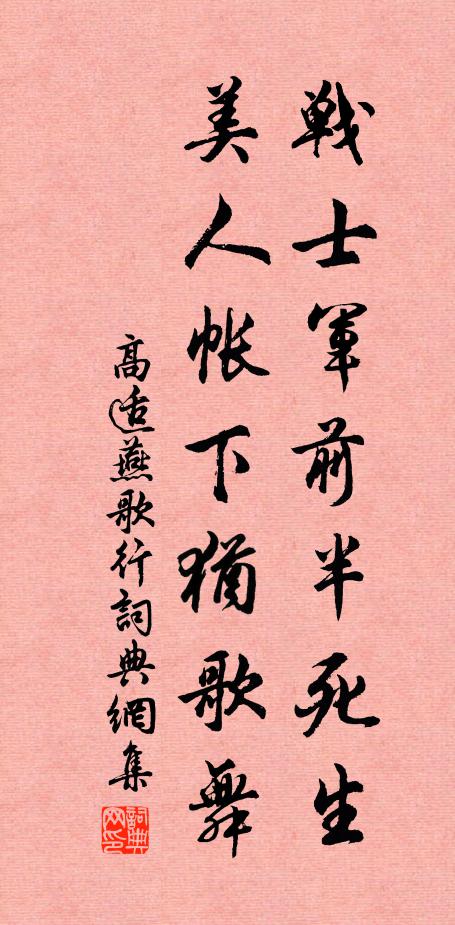 戦士軍前半死生
美人帐下猶歌舞
高适燕歌行詞典網集
詞典网印